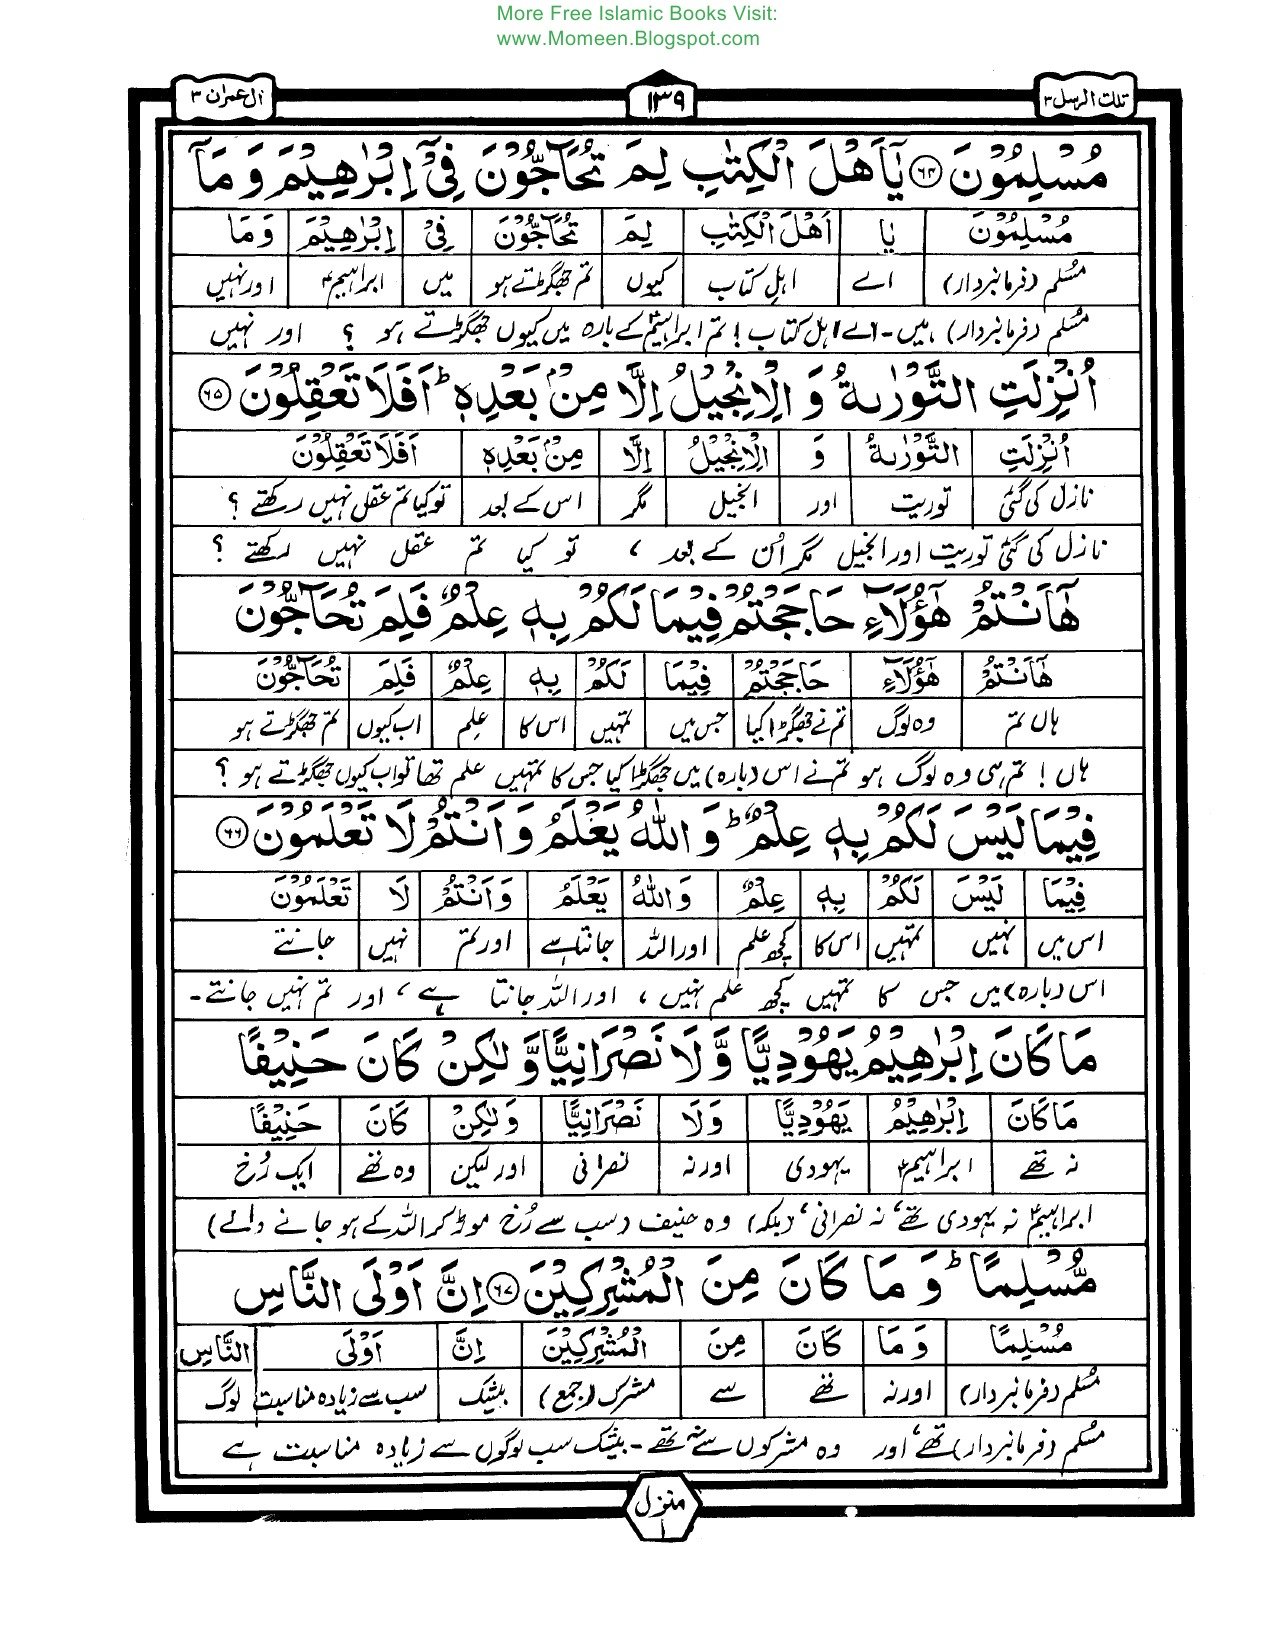 More Free Islamic Books Visit:
www.Momeen.Blogspot.com
تلك الرسل ۳ ۱۳۹ اٰل عمران ۳
مُسْلِمُوْنَ ﴿۶۴﴾ يٰۤاَهْلَ الْكِتٰبِ لِمَ تُحَآجُّوْنَ فِيْۤ اِبْرٰهِيْمَ وَ مَاۤ
مُسْلِمُوْنَ يَا اَهْلَ الْكِتٰبِ لِمَ تُحَآجُّوْنَ فِيْ اِبْرٰهِيْمَ وَ مَا
مُسلم (فرمانبردار) اے اہلِ کتاب کیوں تم جھگڑتے ہو میں ابراہیمؑ اور نہیں
مُسلم (فرمانبردار) ہیں۔ اے اہل کتاب! تم ابراہیمؑ کے بارہ میں کیوں جھگڑتے ہو ؟ اور نہیں
اُنْزِلَتِ التَّوْرٰىةُ وَ الْاِنْجِيْلُ اِلَّا مِنْۢ بَعْدِهٖ ؕ اَفَلَا تَعْقِلُوْنَ ﴿۶۵﴾
اُنْزِلَتِ التَّوْرٰىةُ وَ الْاِنْجِيْلُ اِلَّا مِنْۢ بَعْدِهٖ اَفَلَا تَعْقِلُوْنَ
نازل کی گئی توریت اور انجیل مگر اس کے بعد تو کیا تم عقل نہیں رکھتے ؟
نازل کی گئی توریت اور انجیل مگر اُن کے بعد ، تو کیا تم عقل نہیں رکھتے ؟
هٰۤاَنْتُمْ هٰۤؤُلَآءِ حَاجَجْتُمْ فِيْمَا لَكُمْ بِهٖ عِلْمٌ فَلِمَ تُحَآجُّوْنَ
هٰۤاَنْتُمْ هٰۤؤُلَآءِ حَاجَجْتُمْ فِيْمَا لَكُمْ بِهٖ عِلْمٌ فَلِمَ تُحَآجُّوْنَ
ہاں تم وہ لوگ تم نے جھگڑا کیا جس میں تمہیں اس کا علم اب کیوں تم جھگڑتے ہو
ہاں! تم ہی وہ لوگ ہو تم نے اس (بارہ) میں جھگڑا کیا جس کا تمہیں علم تھا تو اب کیوں جھگڑتے ہو ؟
فِيْمَا لَيْسَ لَكُمْ بِهٖ عِلْمٌ ؕ وَ اللّٰهُ يَعْلَمُ وَ اَنْتُمْ لَا تَعْلَمُوْنَ ﴿۶۶﴾
فِيْمَا لَيْسَ لَكُمْ بِهٖ عِلْمٌ وَ اللّٰهُ يَعْلَمُ وَ اَنْتُمْ لَا تَعْلَمُوْنَ
اس میں نہیں تمہیں اس کا کچھ علم اور اللہ جانتا ہے اور تم نہیں جانتے
اس (بارہ) میں جس کا تمہیں کچھ علم نہیں ، اور اللہ جانتا ہے ، اور تم نہیں جانتے۔
مَا كَانَ اِبْرٰهِيْمُ يَهُوْدِيًّا وَّ لَا نَصْرَانِيًّا وَّ لٰكِنْ كَانَ حَنِيْفًا
مَا كَانَ اِبْرٰهِيْمُ يَهُوْدِيًّا وَ لَا نَصْرَانِيًّا وَ لٰكِنْ كَانَ حَنِيْفًا
نہ تھے ابراہیمؑ یہودی اور نہ نصرانی اور لیکن وہ تھے ایک رُخ
ابراہیمؑ نہ یہودی تھے ، نہ نصرانی ، (بلکہ) وہ حنیف (سب سے رُخ موڑ کر اللہ کے ہو جانے والے)
مُّسْلِمًا ؕ وَ مَا كَانَ مِنَ الْمُشْرِكِيْنَ ﴿۶۷﴾ اِنَّ اَوْلَى النَّاسِ
مُسْلِمًا وَ مَا كَانَ مِنَ الْمُشْرِكِيْنَ اِنَّ اَوْلَى النَّاسِ
مُسلم (فرمانبردار) اور نہ تھے سے مشرک (جمع) بیشک سب سے زیادہ مناسبت لوگ
مُسلم (فرمانبردار) تھے ، اور وہ مشرکوں سے نہ تھے۔ بیشک سب لوگوں سے زیادہ مناسبت ہے
منزل ۱